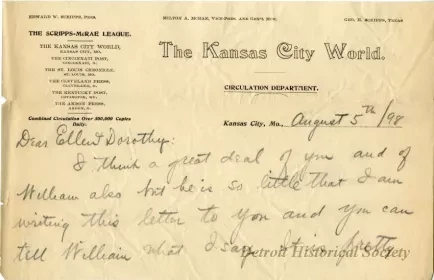 EDWARD W. SCRIPPS, PRES.
MILTON A. McRAE, VICE-PRES. AND GEN'L MGR.
GEO. H. SCRIPPS, TREAS.
THE SCRIPPS-McRAE LEAGUE.
THE KANSAS CITY WORLD,
KANSAS CITY, MO.
THE CINCINNATI POST,
CINCINNATI, O.
THE ST. LOUIS CHRONICLE,
ST. LOUIS, MO.
THE CLEVELAND PRESS,
CLEVELAND, O.
THE KENTUCKY POST,
COVINGTON, KY.
THE AKRON PRESS,
AKRON, O.
Combined Circulation Over 300,000 Copies
Daily.
The Kansas City World.
CIRCULATION DEPARTMENT.
Kansas City, Mo., August 5th /98
Dear Ellen Dorothy:
I think a great deal of you and of
William also but he is so little that I am
writing this letter to you and you can
tell William what I say. It is pretty
Detroit Historical Society